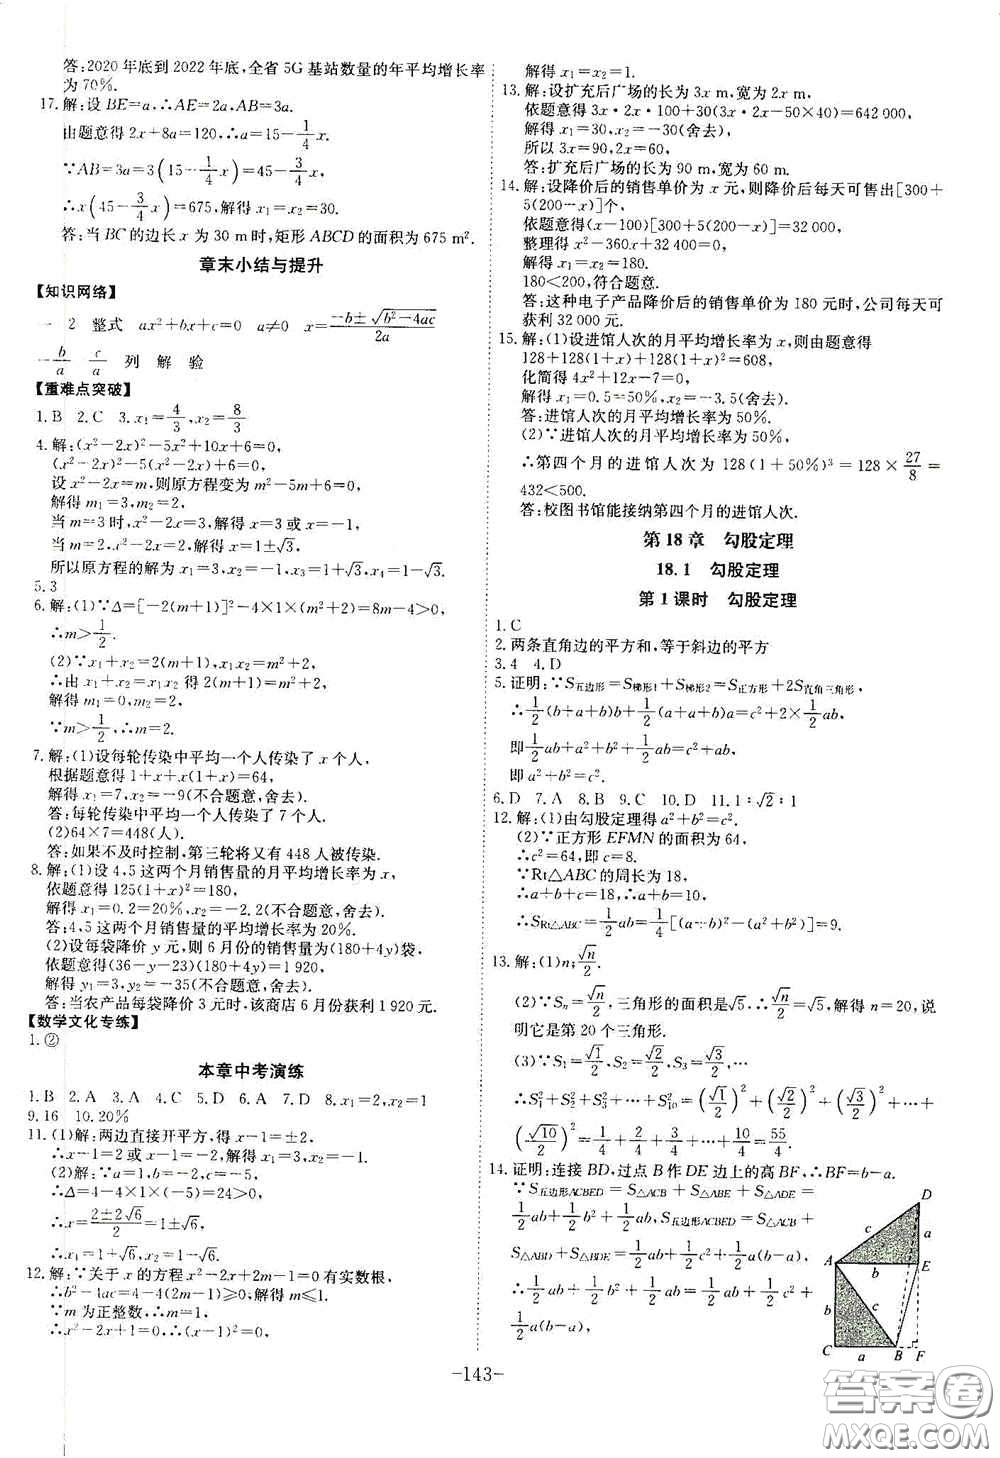 答:2020年底到2022年底,全省5G基站数量的年平均增长率
为70%.
17.解:设BE=a,∴AE=2a,AB=3a.
由题意得2x+8a=120,∴a=15-1/4x.
∵AB=3a=3(15-1/4x)=45-3/4x,
∴x(45-3/4x)=675,解得x₁=x₂=30.
答:当BC的边长x为30 m时,矩形ABCD的面积为675 m².
章末小结与提升
【知识网络】
一 2 整式 ax²+bx+c=0 a≠0 x=(-b±√(b²-4ac))/2a
-b/a c/a 列 解 验
【重难点突破】
1.B 2.C 3.x₁=4/3,x₂=8/3
4.解:(x²-2x)²-5x²+10x+6=0,
(x²-2x)²-5(x²-2x)+6=0,
设x²-2x=m,则原方程变为m²-5m+6=0,
解得m₁=3,m₂=2.
当m=3时,x²-2x=3,解得x=3或x=-1,
当m=2,x²-2x=2,解得x=1±√3,
所以原方程的解为x₁=3,x₂=-1,x₃=1+√3,x₄=1-√3.
5.3
6.解:(1)∵Δ=[-2(m+1)]²-4×1×(m²+2)=8m-4>0,
∴m>1/2.
(2)∵x₁+x₂=2(m+1),x₁x₂=m²+2,
∴由x₁+x₂=x₁x₂得2(m+1)=m²+2,
解得m₁=0,m₂=2,
∵m>1/2,∴m=2.
7.解:(1)设每轮传染中平均一个人传染了x个人,
根据题意得1+x+x(1+x)=64,
解得x₁=7,x₂=-9(不合题意,舍去).
答:每轮传染中平均一个人传染了7个人.
(2)64×7=448(人).
答:如果不及时控制,第三轮将又有448人被传染.
8.解:(1)设4,5这两个月销售量的月平均增长率为x,
依题意得125(1+x)²=180,
解得x₁=0.2=20%,x₂=-2.2(不合题意,舍去).
答:4,5这两个月销售量的月平均增长率为20%.
(2)设每袋降价y元,则6月份的销售量为(180+4y)袋,
依题意得(36-y-23)(180+4y)=1 920,
解得y₁=3,y₂=-35(不合题意,舍去).
答:当农产品每袋降价3元时,该商店6月份获利1 920元.
【数学文化专练】
1.②
本章中考演练
1.B 2.A 3.A 4.C 5.D 6.A 7.D 8.x₁=2,x₂=1
9.16 10.20%
11.(1)解:两边直接开平方,得x-1=±2,
∴x-1=2或x-1=-2,解得x₁=3,x₂=-1.
(2)解:∵a=1,b=-2,c=-5,
∴Δ=4-4×1×(-5)=24>0,
∴x=(2±2√6)/2=1±√6,
∴x₁=1+√6,x₂=1-√6.
12.解:∵关于x的方程x²-2x+2m-1=0有实数根,
∴b²-4ac=4-4(2m-1)≥0,解得m≤1.
∵m为正整数,∴m=1,
∴x²-2x+1=0,∴(x-1)²=0,
解得x₁=x₂=1.
13.解:设扩充后广场的长为3x m,宽为2x m,
依题意得3x·2x·100+30(3x·2x-50×40)=642 000,
解得x₁=30,x₂=-30(舍去),
所以3x=90,2x=60,
答:扩充后广场的长为90 m,宽为60 m.
14.解:设降价后的销售单价为x元,则降价后每天可售出[300+
5(200-x)]个,
依题意得(x-100)[300+5(200-x)]=32 000,
整理得x²-360x+32 400=0,
解得x₁=x₂=180.
180<200,符合题意.
答:这种电子产品降价后的销售单价为180元时,公司每天可
获利32 000元.
15.解:(1)设进馆人次的月平均增长率为x,则由题意得
128+128(1+x)+128(1+x)²=608,
化简得4x²+12x-7=0,
解得x₁=0.5=50%,x₂=-3.5(舍去).
答:进馆人次的月平均增长率为50%.
(2)∵进馆人次的月平均增长率为50%,
∴第四个月的进馆人次为128(1+50%)³=128×27/8=
432<500.
答:校图书馆能接纳第四个月的进馆人次.
第18章 勾股定理
18.1 勾股定理
第1课时 勾股定理
1.C
2.两条直角边的平方和,等于斜边的平方
3.4 4.D
5.证明:∵S五边形=S梯形1+S梯形2=S正方形+2S直角三角形,
∴1/2(b+a+b)b+1/2(a+a+b)a=c²+2×1/2ab,
即1/2ab+b²+a²+1/2ab=c²+ab,
即a²+b²=c².
6.D 7.A 8.B 9.C 10.D 11.1∶√2∶1
12.解:(1)由勾股定理得a²+b²=c².
(2)∵正方形EFMN的面积为64,
∴c²=64,即c=8.
∵Rt△ABC的周长为18,
∴a+b+c=18,∴a+b=10,
∴S Rt△ABC=1/2ab=1/4[(a+b)²-(a²+b²)]=9.
13.解:(1)n;√n/2.
(2)∵Sₙ=√n/2,三角形的面积是√5,∴√n/2=√5,解得n=20,说
明它是第20个三角形.
(3)∵S₁=√1/2,S₂=√2/2,S₃=√3/2,…,
∴S₁²+S₂²+S₃²+…+S₁₀²=(√1/2)²+(√2/2)²+(√3/2)²+…+
(√10/2)²=1/4+2/4+3/4+…+10/4=55/4.
14.证明:连接BD,过点B作DE边上的高BF,∴BF=b-a.
∵S五边形ACBED=S△ACB+S△ABE+S△ADE=
1/2ab+1/2b²+1/2ab,S五边形ACBED=S△ACB+
S△ABD+S△BDE=1/2ab+1/2c²+1/2a(b-a),
∴1/2ab+1/2b²+1/2ab=1/2ab+1/2c²+
1/2a(b-a),
D
c
a
A
b
E
b
c
C
a
B
F
-143-
答案卷
MXQE.COM